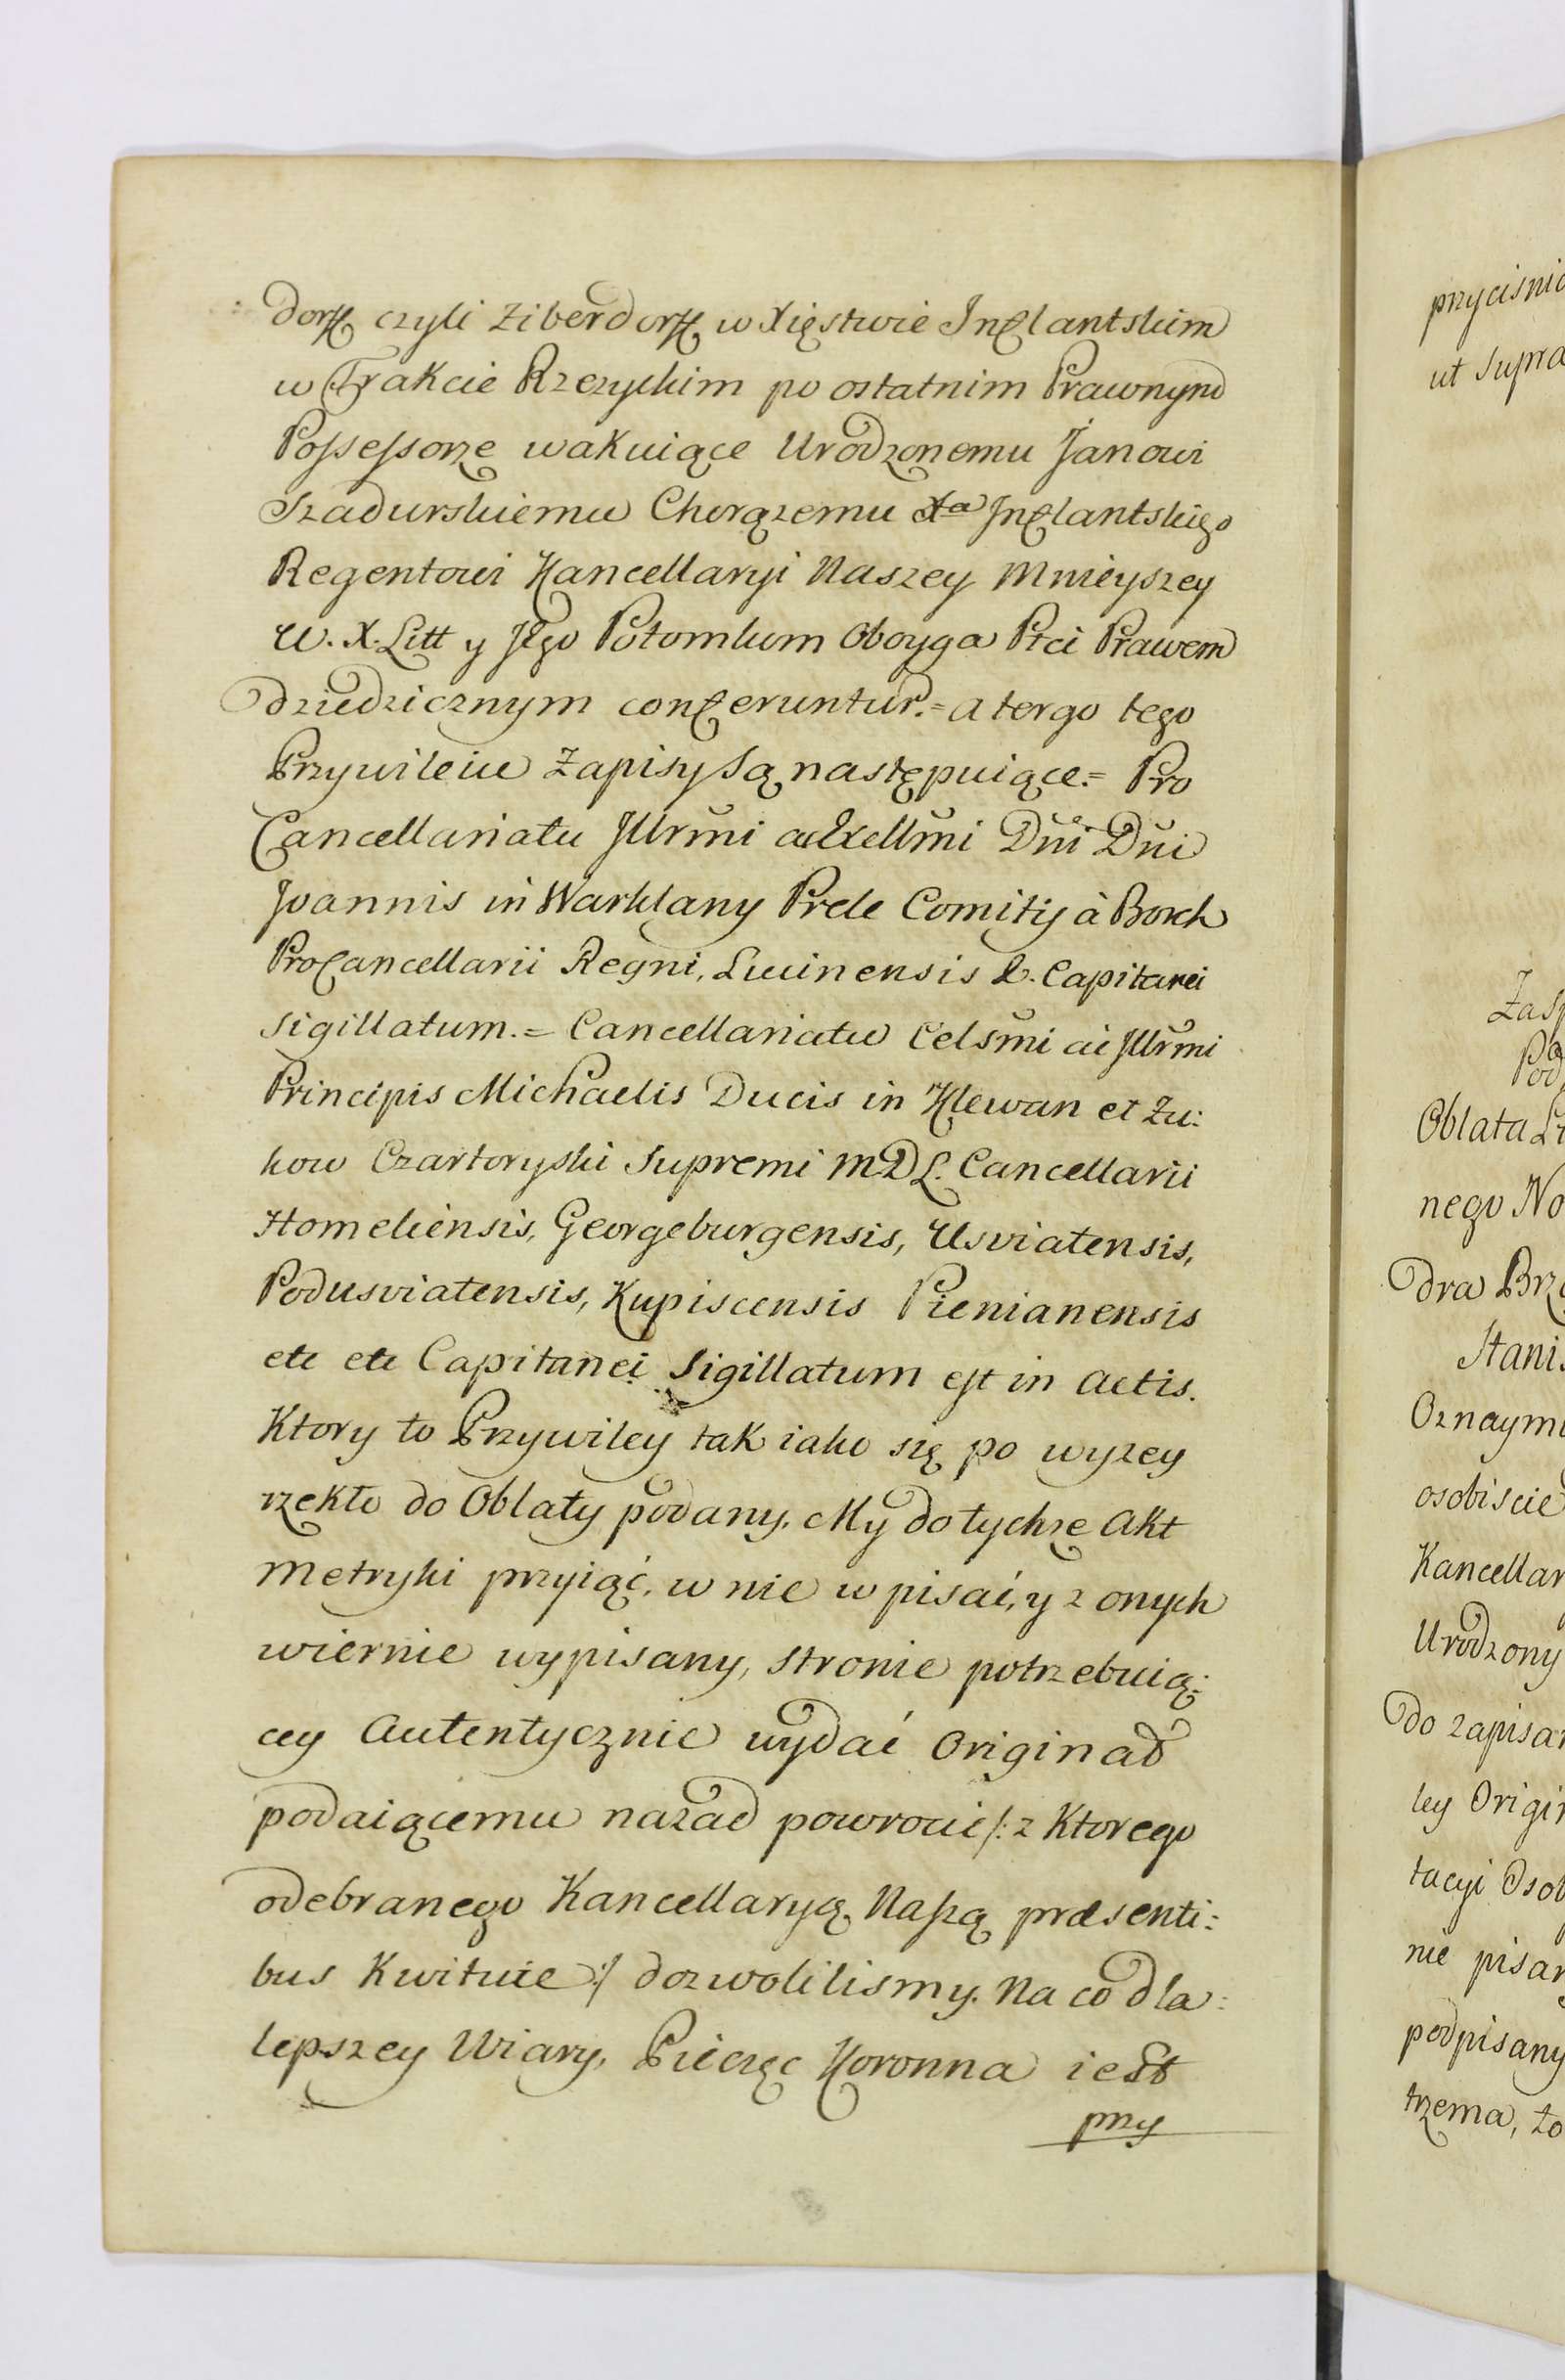 dorff czyli Ziberdorff w Xięstwie Inflantskim
w Trakcie Rzezyckim po ostatnim Prawnym
Possessorze wakuiące Urodzonemu Janowi
Szadurskiemu Chorązemu Xa Inflantskiego
Regentowi Kancellaryi Naszey Mnieyszey
W. X. Litt y Jego Potomkom Oboyga Płci Prawem
dziedzicznym conferuntur.= a tergo tego
Przywileiu Zapisy są następuiące.= Pro
Cancellariatu Jllrmi ac Excellmi Dni Dni
Joannis in Warklany Prele Comitis à Borch
ProCancellarii Regni, Lucinensis &. Capitanei
Sigillatum.= Cancellariatu Celsmi ac Jllrmi
Principis Michaelis Ducis in Klewan et Zu:
kow Czartoryski Supremi M.D.L. Cancellarii
Homeliensis, Georgeburgensis, Usviatensis,
Podusviatensis, Kupiscensis Pienianensis
etc etc Capitanei Sigillatum est in Actis.
Ktory to Przywiley tak iako się po wyzey
rzekło do Oblaty podany. My do tychze Akt
Metryki przyiąć, w nie wpisać, y z onych
wiernie wypisany, stronie potrzebuią:
cey Autentycznie wydać Originał
podaiącemu nazad powrocić /: z Ktorego
odebranego Kancellaryą Naszą præsenti:
bus Kwituie :/ dozwolilismy. Na co dla
lepszey Wiary, Pieczęc Koronna iest
przy
przycisnio
ut supra
Zasp
Pod
Oblata
nego No
dra Brz
Stanis
Oznaymu
osobiscie
Kancellar
Urodzony
do zapisan
ley Origin
tacyi Osob
nie pisan
podpisany
trzema, to